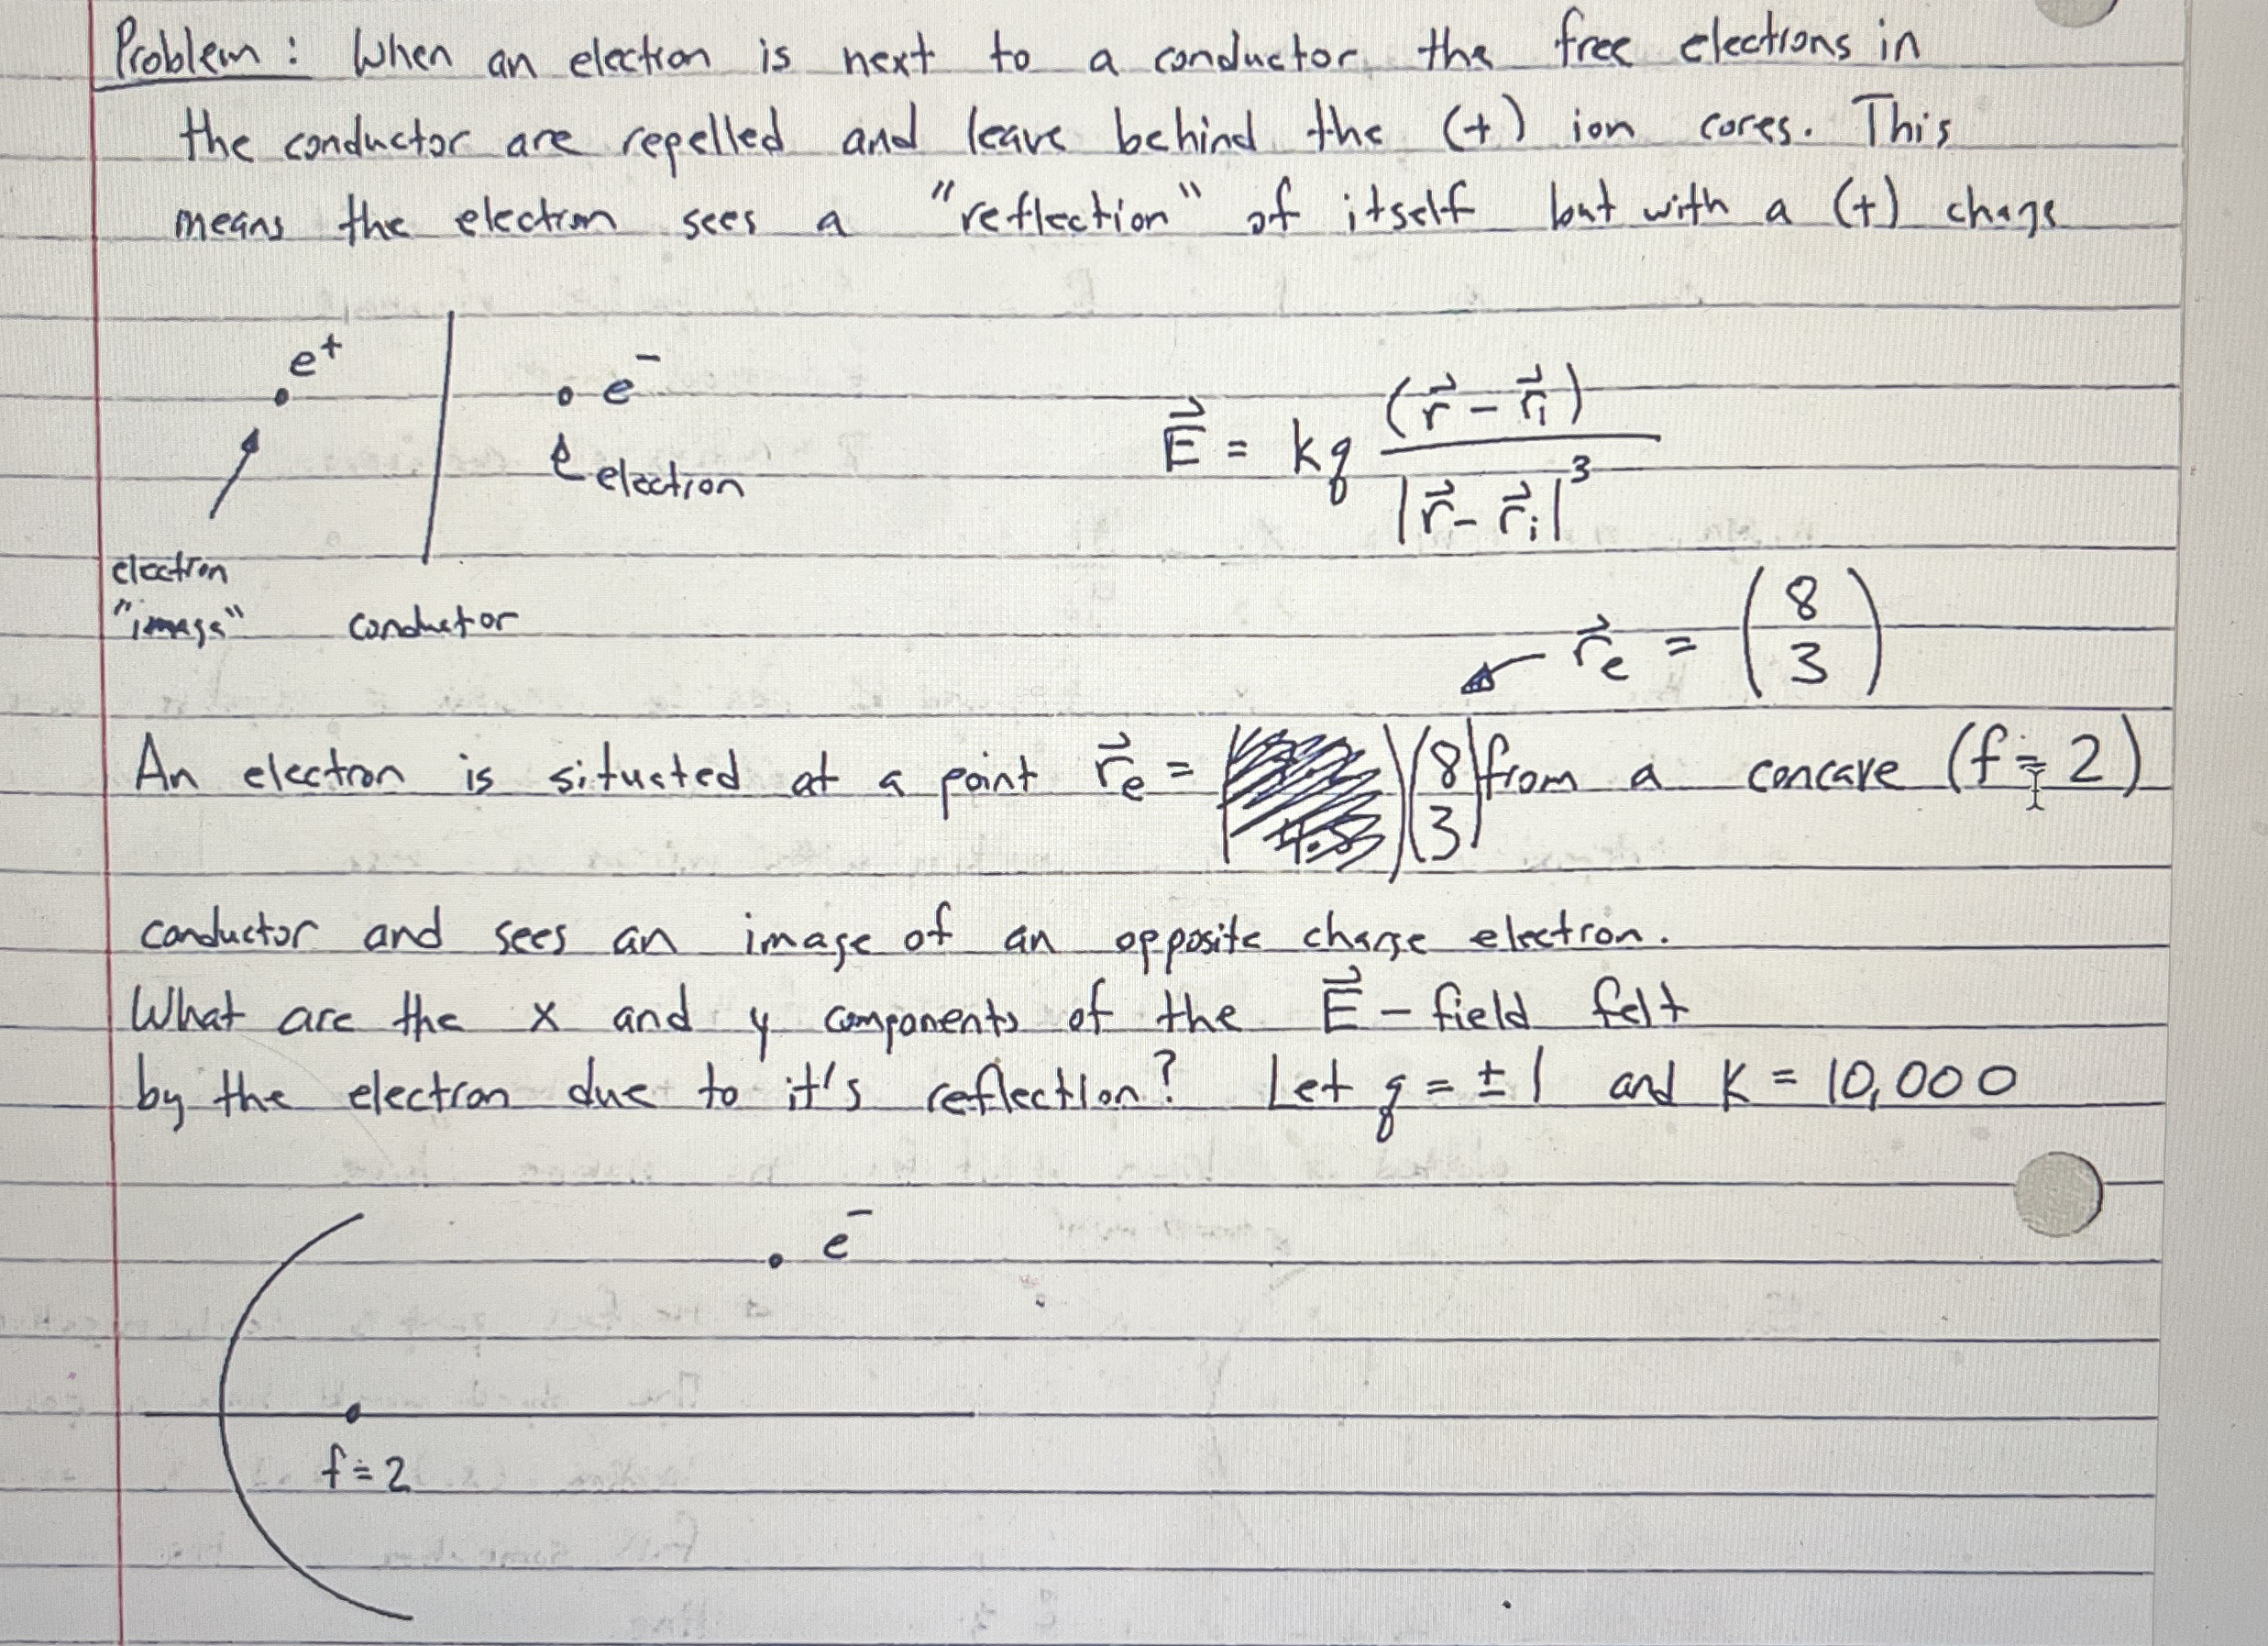 Problem: When an electron is next to a conductor, the free electrons in
the conductor are repelled and leave behind the (+) ion cores. This
means the electron sees a "reflection" of itself but with a (+) charge
e⁺
e⁻
electron
E⃗ = kq (r⃗ - r⃗ᵢ) / |r⃗ - r⃗ᵢ|³
electron
"image"
conductor
r⃗ₑ = (8 3)
An electron is situated at a point r⃗ₑ = (8 3) from a concave (f = 2)
conductor and sees an image of an opposite charge electron.
What are the x and y components of the E⃗ - field felt
by the electron due to it's reflection? Let q = ± 1 and K = 10,000
e⁻
f = 2